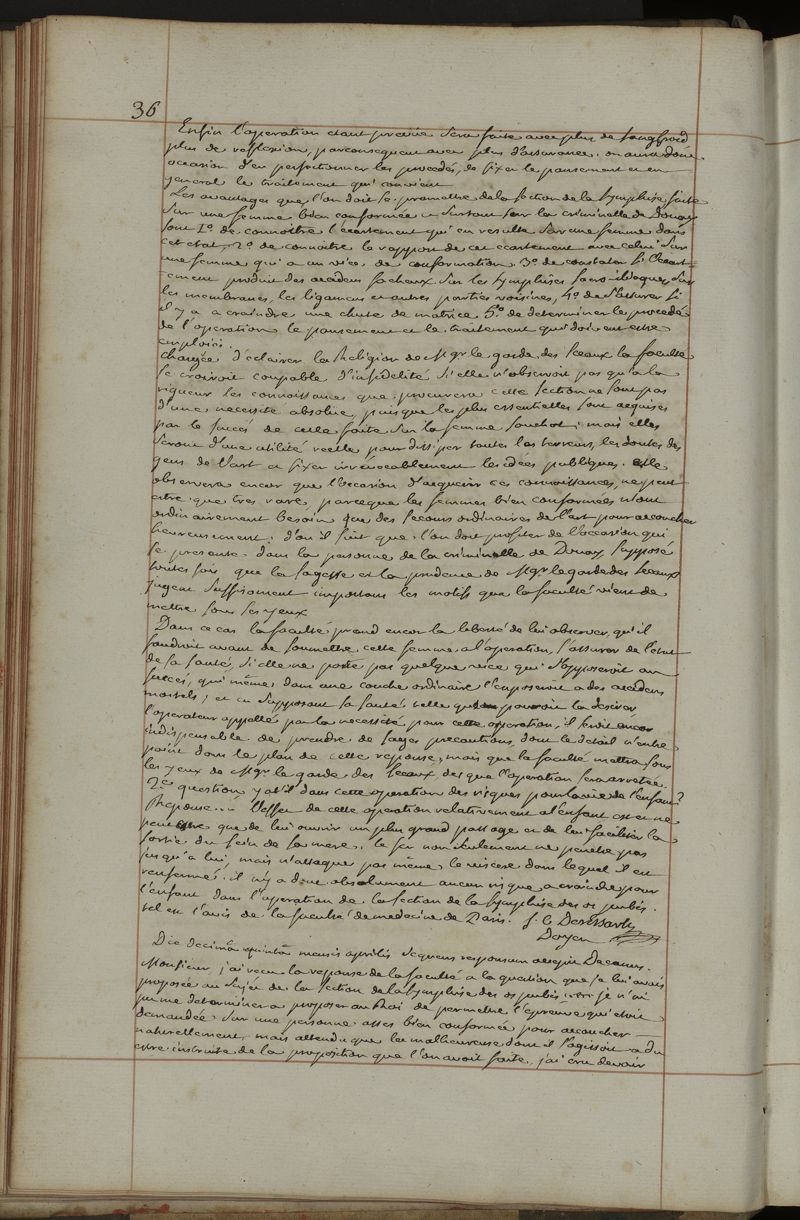 36
Enfin l'operation etant prevüe sera faite avec plus de sangfroid
plus de reflexion, parconsequent avec plus d'assurance. on aura donc
occasion d'en perfectionner les procedés, de fixer le pansement et en
general le traitement qui convient
Les avantages que l'on doit se promettre de la section de la symphise faite
sur une femme bien conformée et surtout sur la criminelle de Douay
sont 1º. de connoitre l'ecartement qui en resulte sur une femme dans
cet etat, 2º. de connoitre le rapport de cet ecartement avec celui sur
une femme qui a un vice de conformation. 3º. de constater si l'ecart-
ement produit des accidens facheux sur les symphises sacro-iliaques, sur
les membranes, les ligamens et autres parties voisines, 4º. de s'assurer si
il y a a craindre une chute de matrice 5º. de determiner les procedés
de l'operation le pansement et le traitement qui doivent etre
emploiés.
Chargée d'eclairer la Religion de Mgr le garde des sceaux la faculté
se croiroit coupable d'infidelité si elle n'observoit pas qu'a la
rigueur les connoissances que procurera cette section ne sont pas
d'une necessité absolue, puisque les plus essentielles sont acquises
par le succés de celle faite sur la femme Souchot; mais elles
seront d'une utilité reelle pour dissiper toutes les terreurs, les doutes des
gens de l'art et fixer irrévocablement les idées publiques. elle
observera encor que l'occasion d'acquerir ces connoissances, ne peut
etre que tres rare, parceque les femmes bien conformées n'ont
ordinairement besoin que des secours ordinaires de l'art pour accoucher
heureusement; d'ou il suit que l'on doit profiter de l'occasion qui
se presente dans la personne de la criminelle de Douay supposé
toutes fois que la sagesse et la prudence de Mgr le garde des sceaux
jugent suffisament importans les motifs que la faculté vient de
mettre sous ses yeux
Dans ce cas la faculté prend encor la liberté de lui observer, qu'il
faudroit avant de soumettre cette femme a l'operation, s'assurer de l'etat
de sa santé, si elle ne porte pas quelque vice qui s'opposeroit au
succés, qui même dans une couche ordinaire l'exposeroit a des accidens
mortels; et en supposant sa santé telle que pouroit la desirer
l'operateur appellé par la necessité pour cette operation, il seroit encor
indispensable de prendre de sages precautions, dont le detail n'entre
point dans le plan de cette reponse, mais que la faculté mettra sous
les yeux de Mgr le garde des sceaux des que l'operation sera arretée.
2e question y at'il dans cette operation des risques pour la vie de l'enfant?
Reponse... L'effet de cette operation relativement a l'enfant est et ne
peut etre que de lui ouvrir un plus grand passage et de lui faciliter la
sortie du sein de sa mere. le fer non seulement ne penetre pas
jusqu'a lui, mais n'attaque pas même le viscere dans lequel il est
renfermé. il n'y a donc absolument aucun risque a craindre pour
l'enfant dans l'operation de la section de la symphise des os pubis.
tel est l'avis de la faculté de medecine de Paris. J. C Desessartz
Doyen
Die decimâ quintâ mensis aprilis sequens responsum accepit Decanus.
Monsieur, j'ai recu la reponse de la faculté a la question que je lui avois
proposée au sujet de la section de la symphise des os pubis. je n'ai
pu me determiner a proposer au Roi de permettre l'epreuve qui etoit
demandée sur une personne asses bien conformée pour accoucher
naturellement, mais attendu que la malheureuse dont il s'agissoit a du
etre instruite de la proposition que l'on avoit faite, j'ai cru devoir